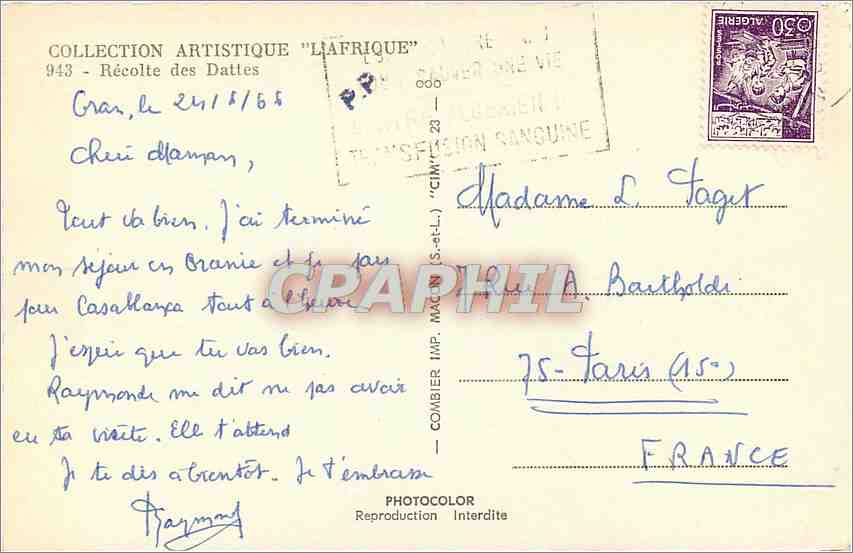 COLLECTION ARTISTIQUE "L'AFRIQUE"
943 - Récolte des Dattes
Oran, le 24/8/66
Cheri Maman,
Tout va bien. J'ai terminé
mon séjour en Oranie et je pars
pour Casablanca tout à l'heure
J'espère que tu vas bien.
Raymonde me dit ne pas avoir
eu ta visite. Elle t'attend
Je te dis à bientôt. Je t'embrasse
Raymond
PHOTOCOLOR
Reproduction Interdite
— COMBIER IMP. MACON (S.-et-L.) "CIM" 23 — 000
P.P
SAUVER UNE VIE
TRANSFUSION SANGUINE
0,30
ALGERIE
Madame L. Paget
Rue A. Bartholdi
75 - Paris (15e)
FRANCE
CPAPHIL